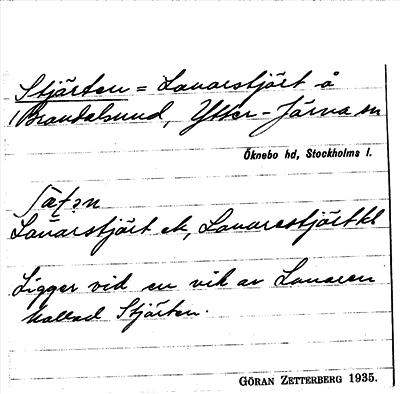 Stjärten = Lanarstjärt å
Brandalsund, Ytter-Järna sn
Öknebo hd, Stockholms l.
Lanarstjärt ek, Lanarestjärt kl
Ligger vid en vik av Lanaren
kallad Stjärten.
GÖRAN ZETTERBERG 1935.